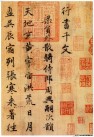 行書千文
員外散騎侍郎周興嗣次韻
天地玄黃宇宙洪荒日月
盈昃辰宿列張寒來暑往